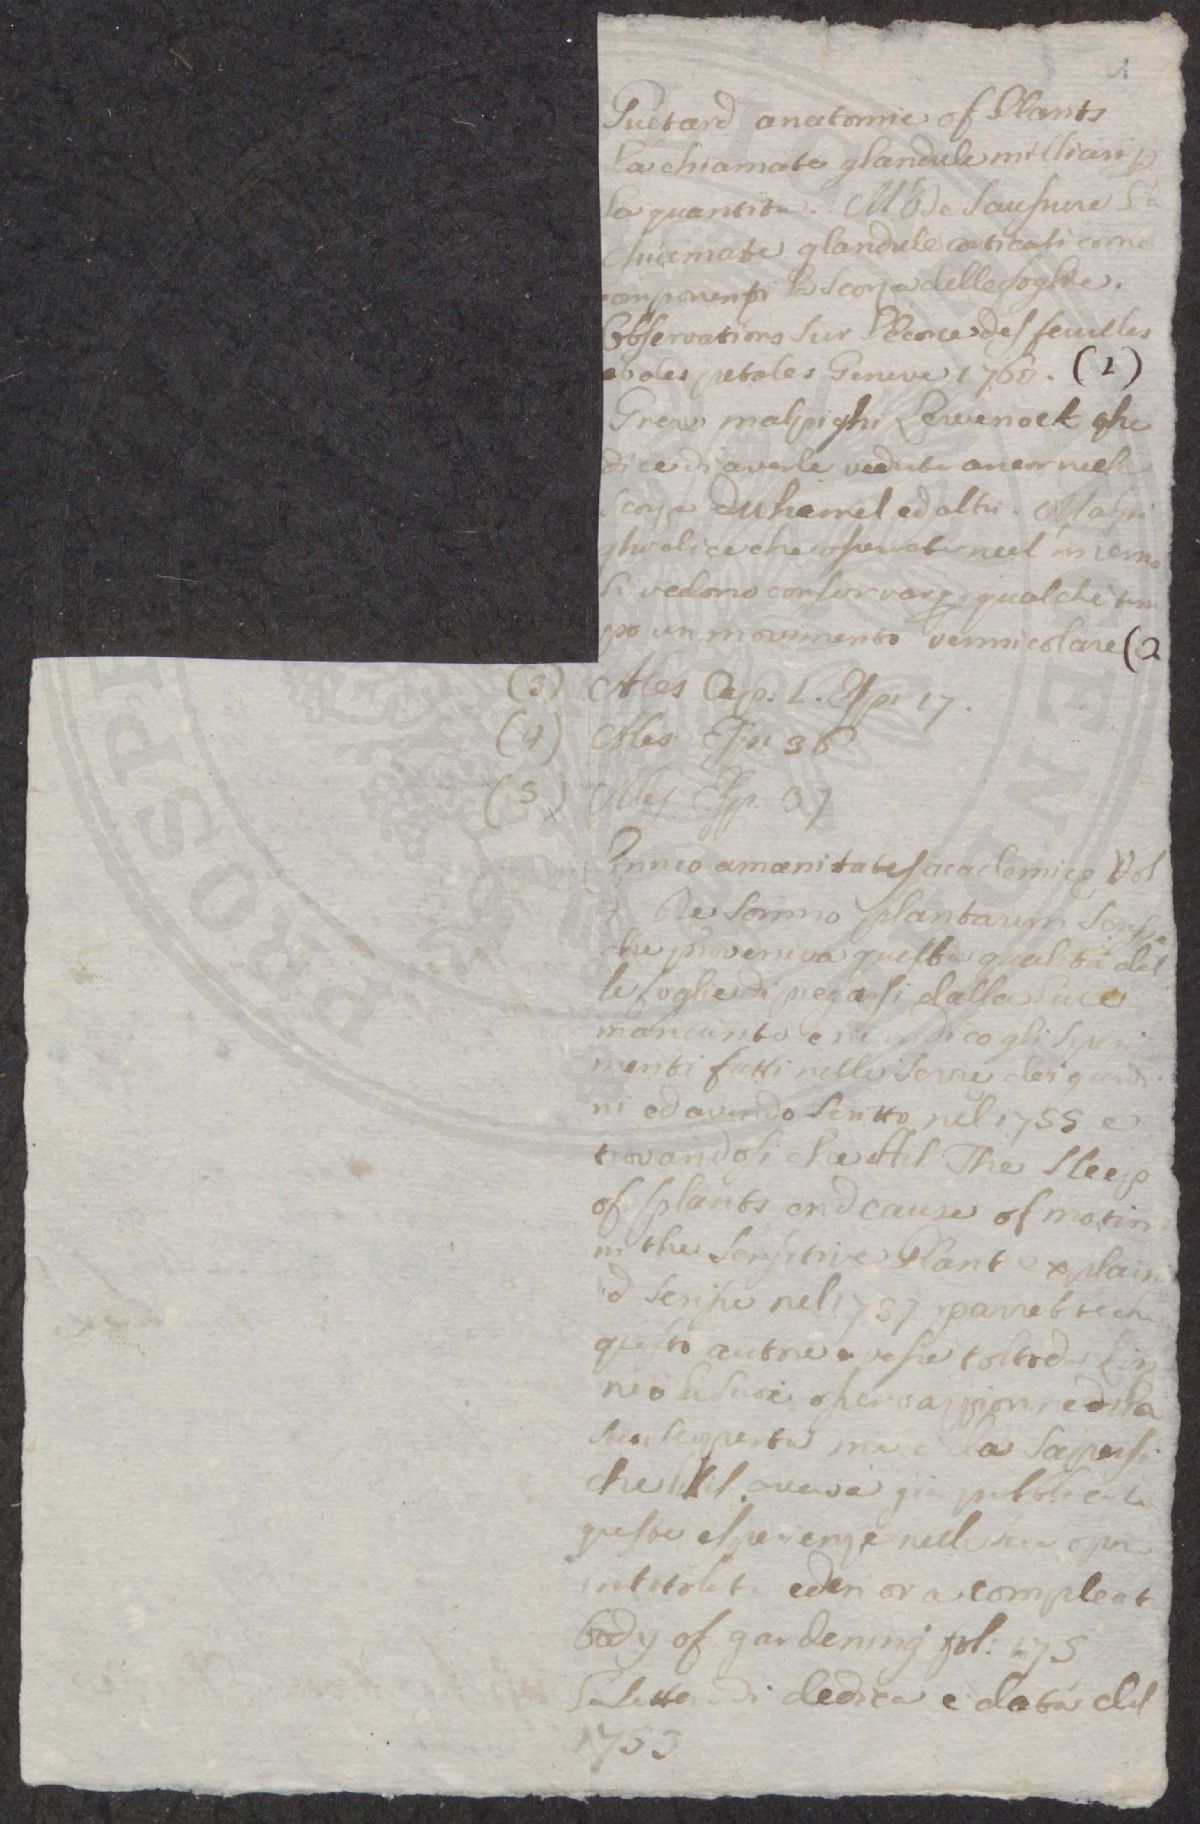 1
Guetard anatomie of Plants
la chiamate glandule milliari p
la quantita. Mr de Saussure l'ha
chiamate glandule corticali come
componenti la scorza delle foglie.
Observations sur l'ecorce des feuilles
et des petales Geneve 1760. (1)
Grew malpighi Lewenoek che
dice di averle vedute ancor nella
scorza Duhamel ed altri. Malpi
ghi dice che osservate nell inverno
si vedono conservar p qualche tem
po un movimento vermicolare (2
(3) Ales Cap. 1. Esp. 17.
(4) Ales Esp. 36
(5) Ales Esp. 37
Linneo amœnitates academicę Vol
4 De Somno plantarum scrisse
che proveniva questa qualità del
le foglie di piegarsi dalla luce
mancante e ne indicò gli speri
menti fatti nelle serre dei giardi
ni ed avendo scritto nel 1755 e
trovandosi che Hil The Sleep
of plants end cause of motion
in the Sensitive Plant explain
'd scrisse nel 1757 parrebbe che
questo autore avesse tolto da Lin
neo le sue osservazzioni ed la
sua scoperta ma è da sapersi
che Hil aveva già pubblicate
queste esperienze nella sua opera
intitolata eden or a compleat
body of gardening fol. 1757
La lettera di dedica e data del
1753
PROSPI
ENDO